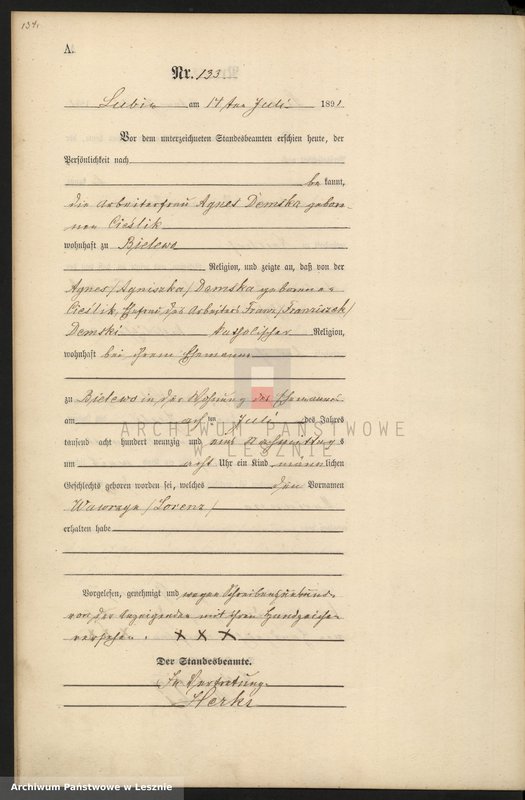 134.
A.
Nr. 133.
Lubin am 14 ten Juli 1891.
Vor dem unterzeichneten Standesbeamten erschien heute, der
Persönlichkeit nach
be kannt,
die Arbeiterfrau Agnes Demska gebor-
nen Cieślik
wohnhaft zu Bielewo
Religion, und zeigte an, daß von der
Agnes /Agniszka/ Demska geborenen
Cieślik, Ehefrau des Arbeiters Franz /Franciszek/
Demski katholischer Religion,
wohnhaft bei ihrem Ehemann
zu Bielewo in der Wohnung des Ehemannes
am ten Juli des Jahres
tausend acht hundert neunzig und eins Nachmittags
um acht Uhr ein Kind männlichen
Geschlechts geboren worden sei, welches den Vornamen
Wawrzyn /Lorenz/
erhalten habe
Vorgelesen, genehmigt und wegen Schreibensunkunde
von der Anzeigenden mit ihrem Handzeichen
versehen. XXX
Der Standesbeamte.
In Vertretung.
ARCHIWUM PAŃSTWOWE
W LESZNIE
Archiwum Państwowe w Lesznie